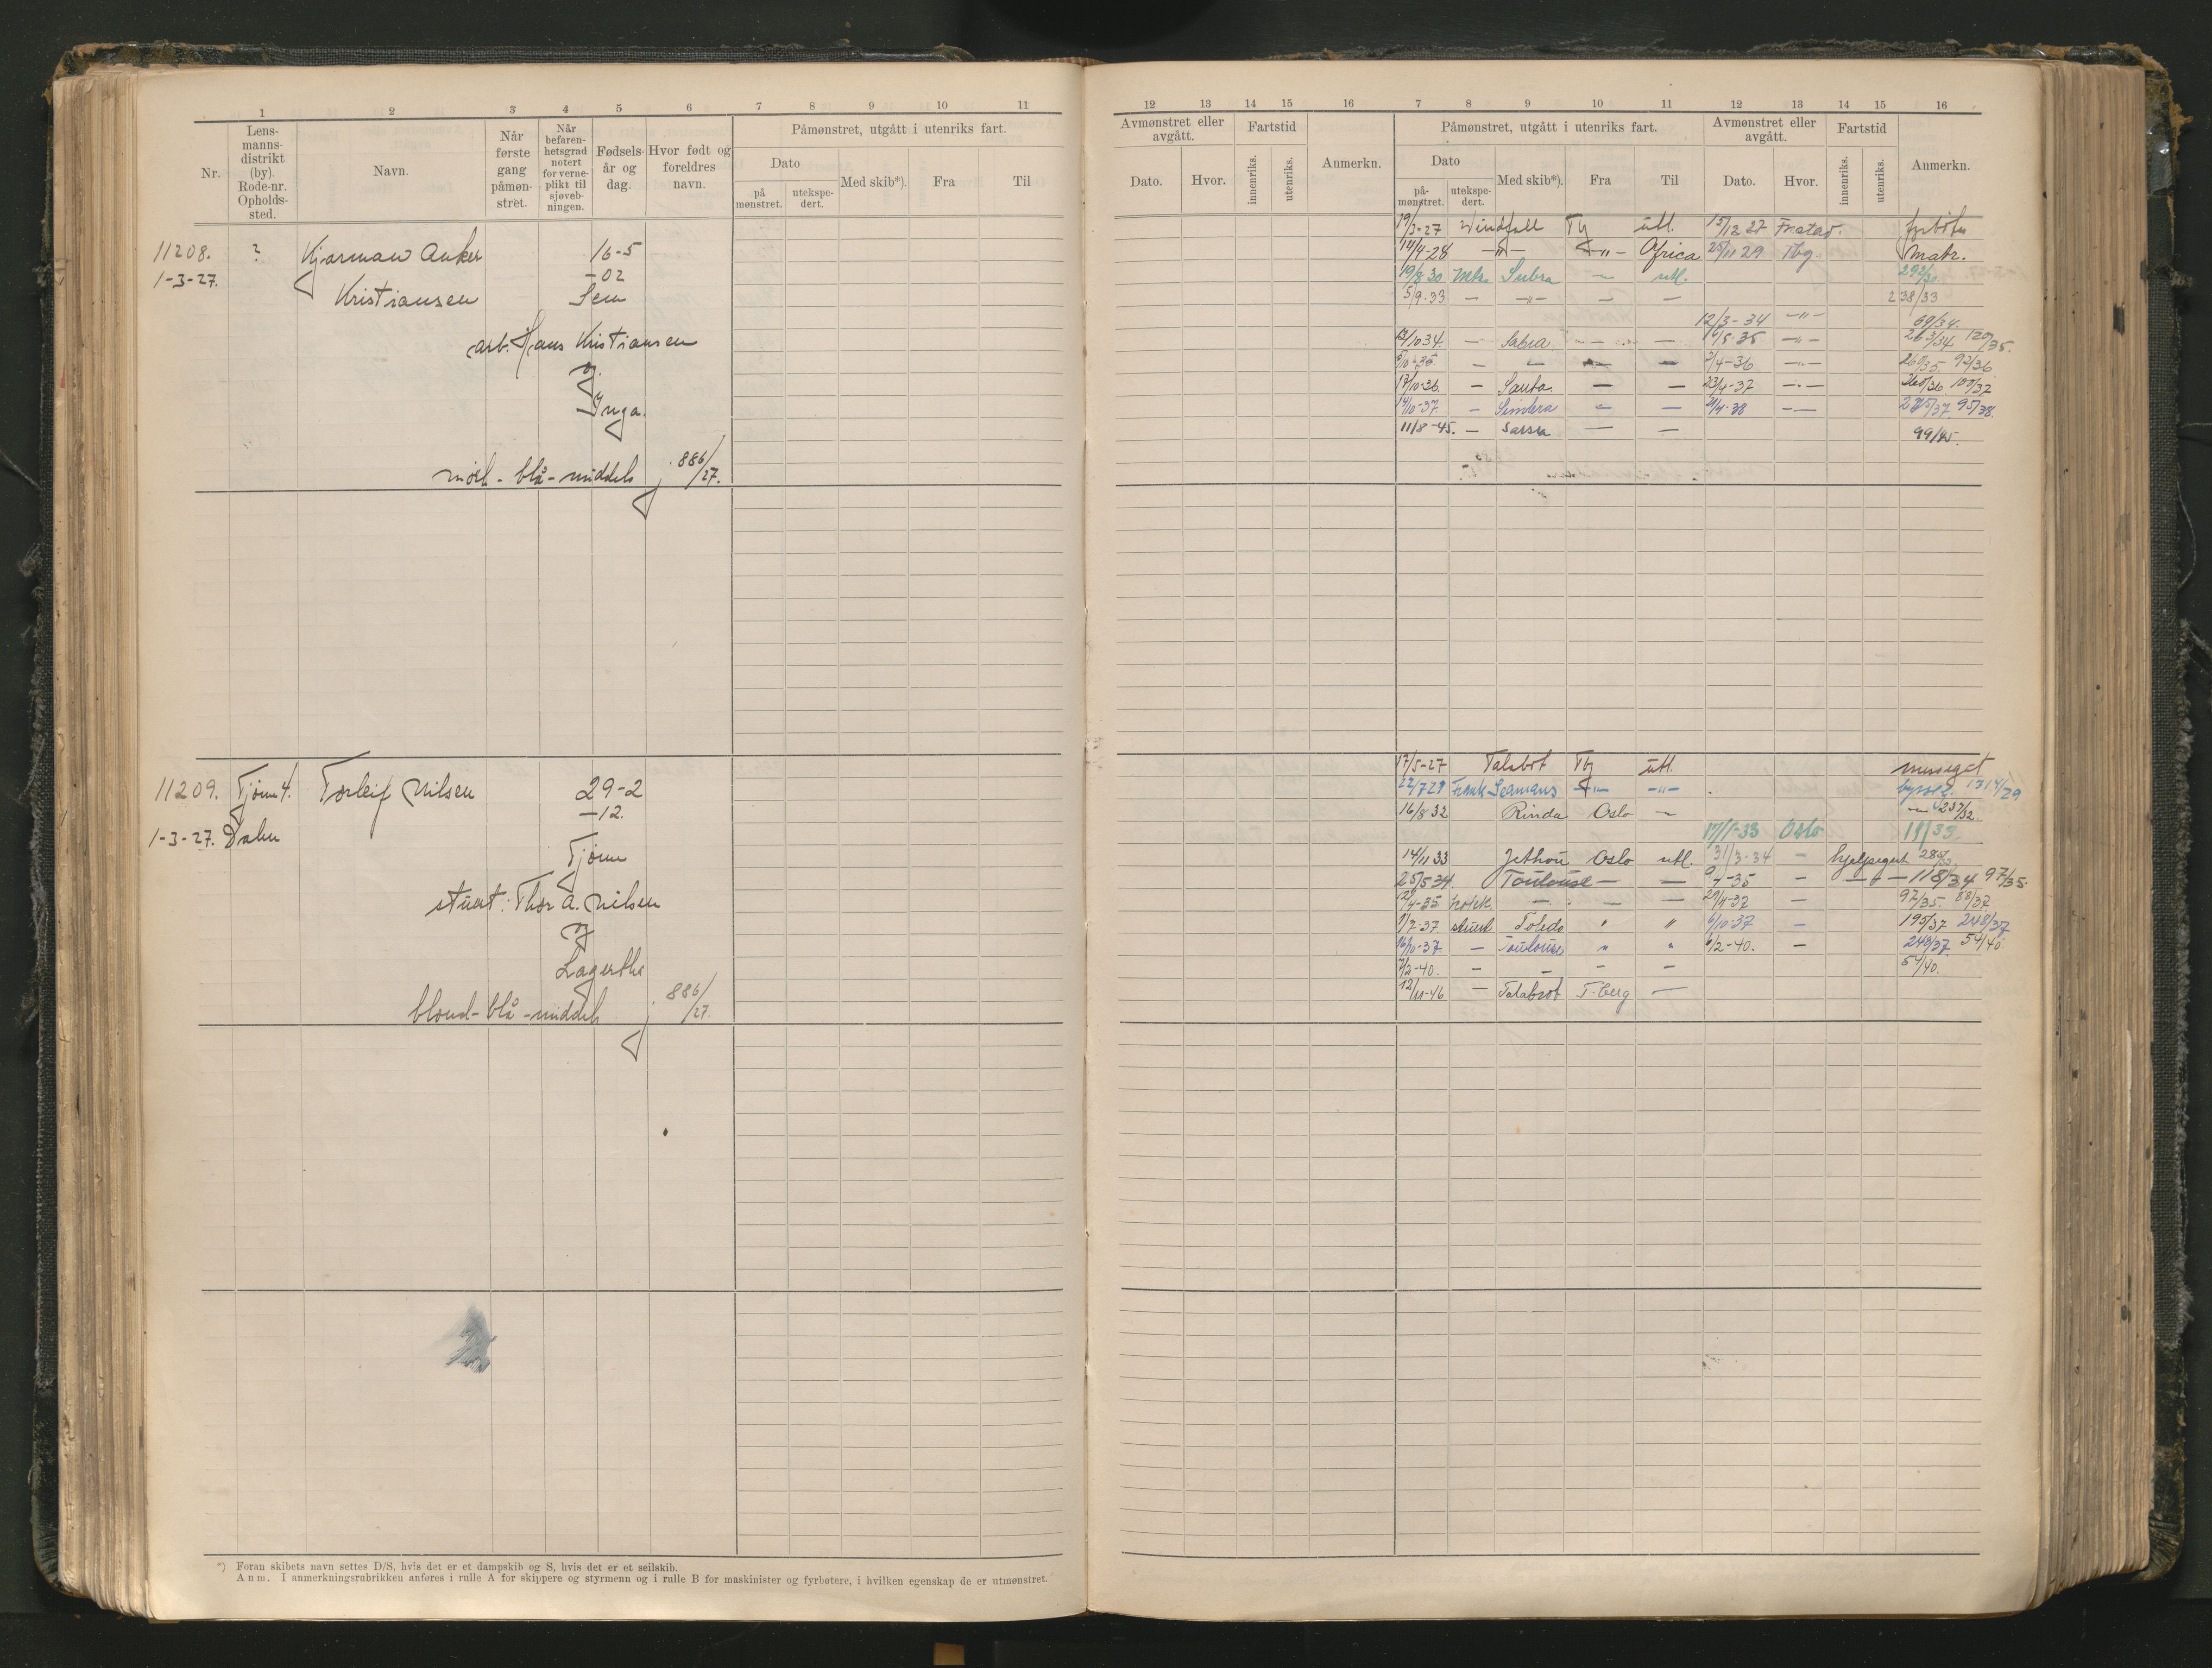 1 2 3 4 5 6 7 8 9 10 11
Nr.
Lens-
manns-
distrikt
(by).
Rode-nr.
Opholds-
sted.
Navn.
Når
første
gang
påmøn-
stret.
Når
befaren-
hetsgrad
notert
for verne-
plikt til
sjøveb-
ningen.
Fødsels-
år og
dag.
Hvor født og
foreldres
navn.
Påmønstret, utgått i utenriks fart.
Dato
på
mønstret.
utekspe-
dert.
Med skib*).
Fra
Til
11208. ? Hjarman Anker 16-5
1-3-27. -02
Kristiansen Sem
arb. Hans Kristiansen
og
Inga.
mørk - blå - middels j. 886/27.
11209. Tjøme 4. Torleif Nilsen 29-2
-12.
1-3-27. Dalen
Tjøme
stuert: Thor A. Nilsen
og
Lagertha
blond - blå - middels j 886/27.
*) Foran skibets navn settes D/S, hvis det er et dampskib og S, hvis det er et seilskib.
Anm. I anmerkningsrubrikken anføres i rulle A for skippere og styrmenn og i rulle B for maskinister og fyrbøtere, i hvilken egenskap de er utmønstret.
12 13 14 15 16 7 8 9 10 11 12 13 14 15 16
Avmønstret eller
avgått.
Fartstid
Dato.
Hvor.
innenriks.
utenriks.
Anmerkn.
Påmønstret, utgått i utenriks fart.
Dato
på-
mønstret.
utekspe-
dert.
Med skib*).
Fra
Til
Avmønstret eller
avgått.
Fartstid
Dato.
Hvor.
innenriks.
utenriks.
Anmerkn.
19/3-27 Windfall Tbg utl. 15/12 27 Fr.stad. fyrbøter
14/4-28 -"- -"- Africa 25/11 29 Tbg. Matr.
19/8 30 Mtr. Subra — utl. 292/30
5/9-33 — -"- — — 238/33
12/3-34 -"- 69/34.
13/10 34. — Sabra — — 16/5-35 -"- 263/34 120/35.
5/10-35. — — — — 2/4-36 -"- 260/35 92/36
17/10-36. — Santa — — 23/4-37 -"- 260/36 100/37
14/10-37. — Simbra — — 21/4-38 -"- 275/37 95/38.
11/8-45. — Sarsra — — 99/45.
17/5-27 Talabot Tbg utl. messegut
22/7 29 Frank Seamans -"- -"- bysseg. 1314/29
16/8 32 Rinda Oslo — — 237/32
17/1-33 Oslo 19/33
14/11 33 Jethou Oslo utl. 31/3-34 — hjelpegut 280/33
25/5 34 Toulouse — — 9/4-35 — — " — 118/34 97/35.
12/4-35 kokk — — — 29/4-37 — 97/35. 88/37
1/7-37 stuert Toledo " " 6/10-37 — 195/37 248/37
16/10-37 — Toulouse " " 6/2-40. — 248/37 54/40.
7/2-40. — — — — 54/40.
12/11-46 — Talabot T.berg —